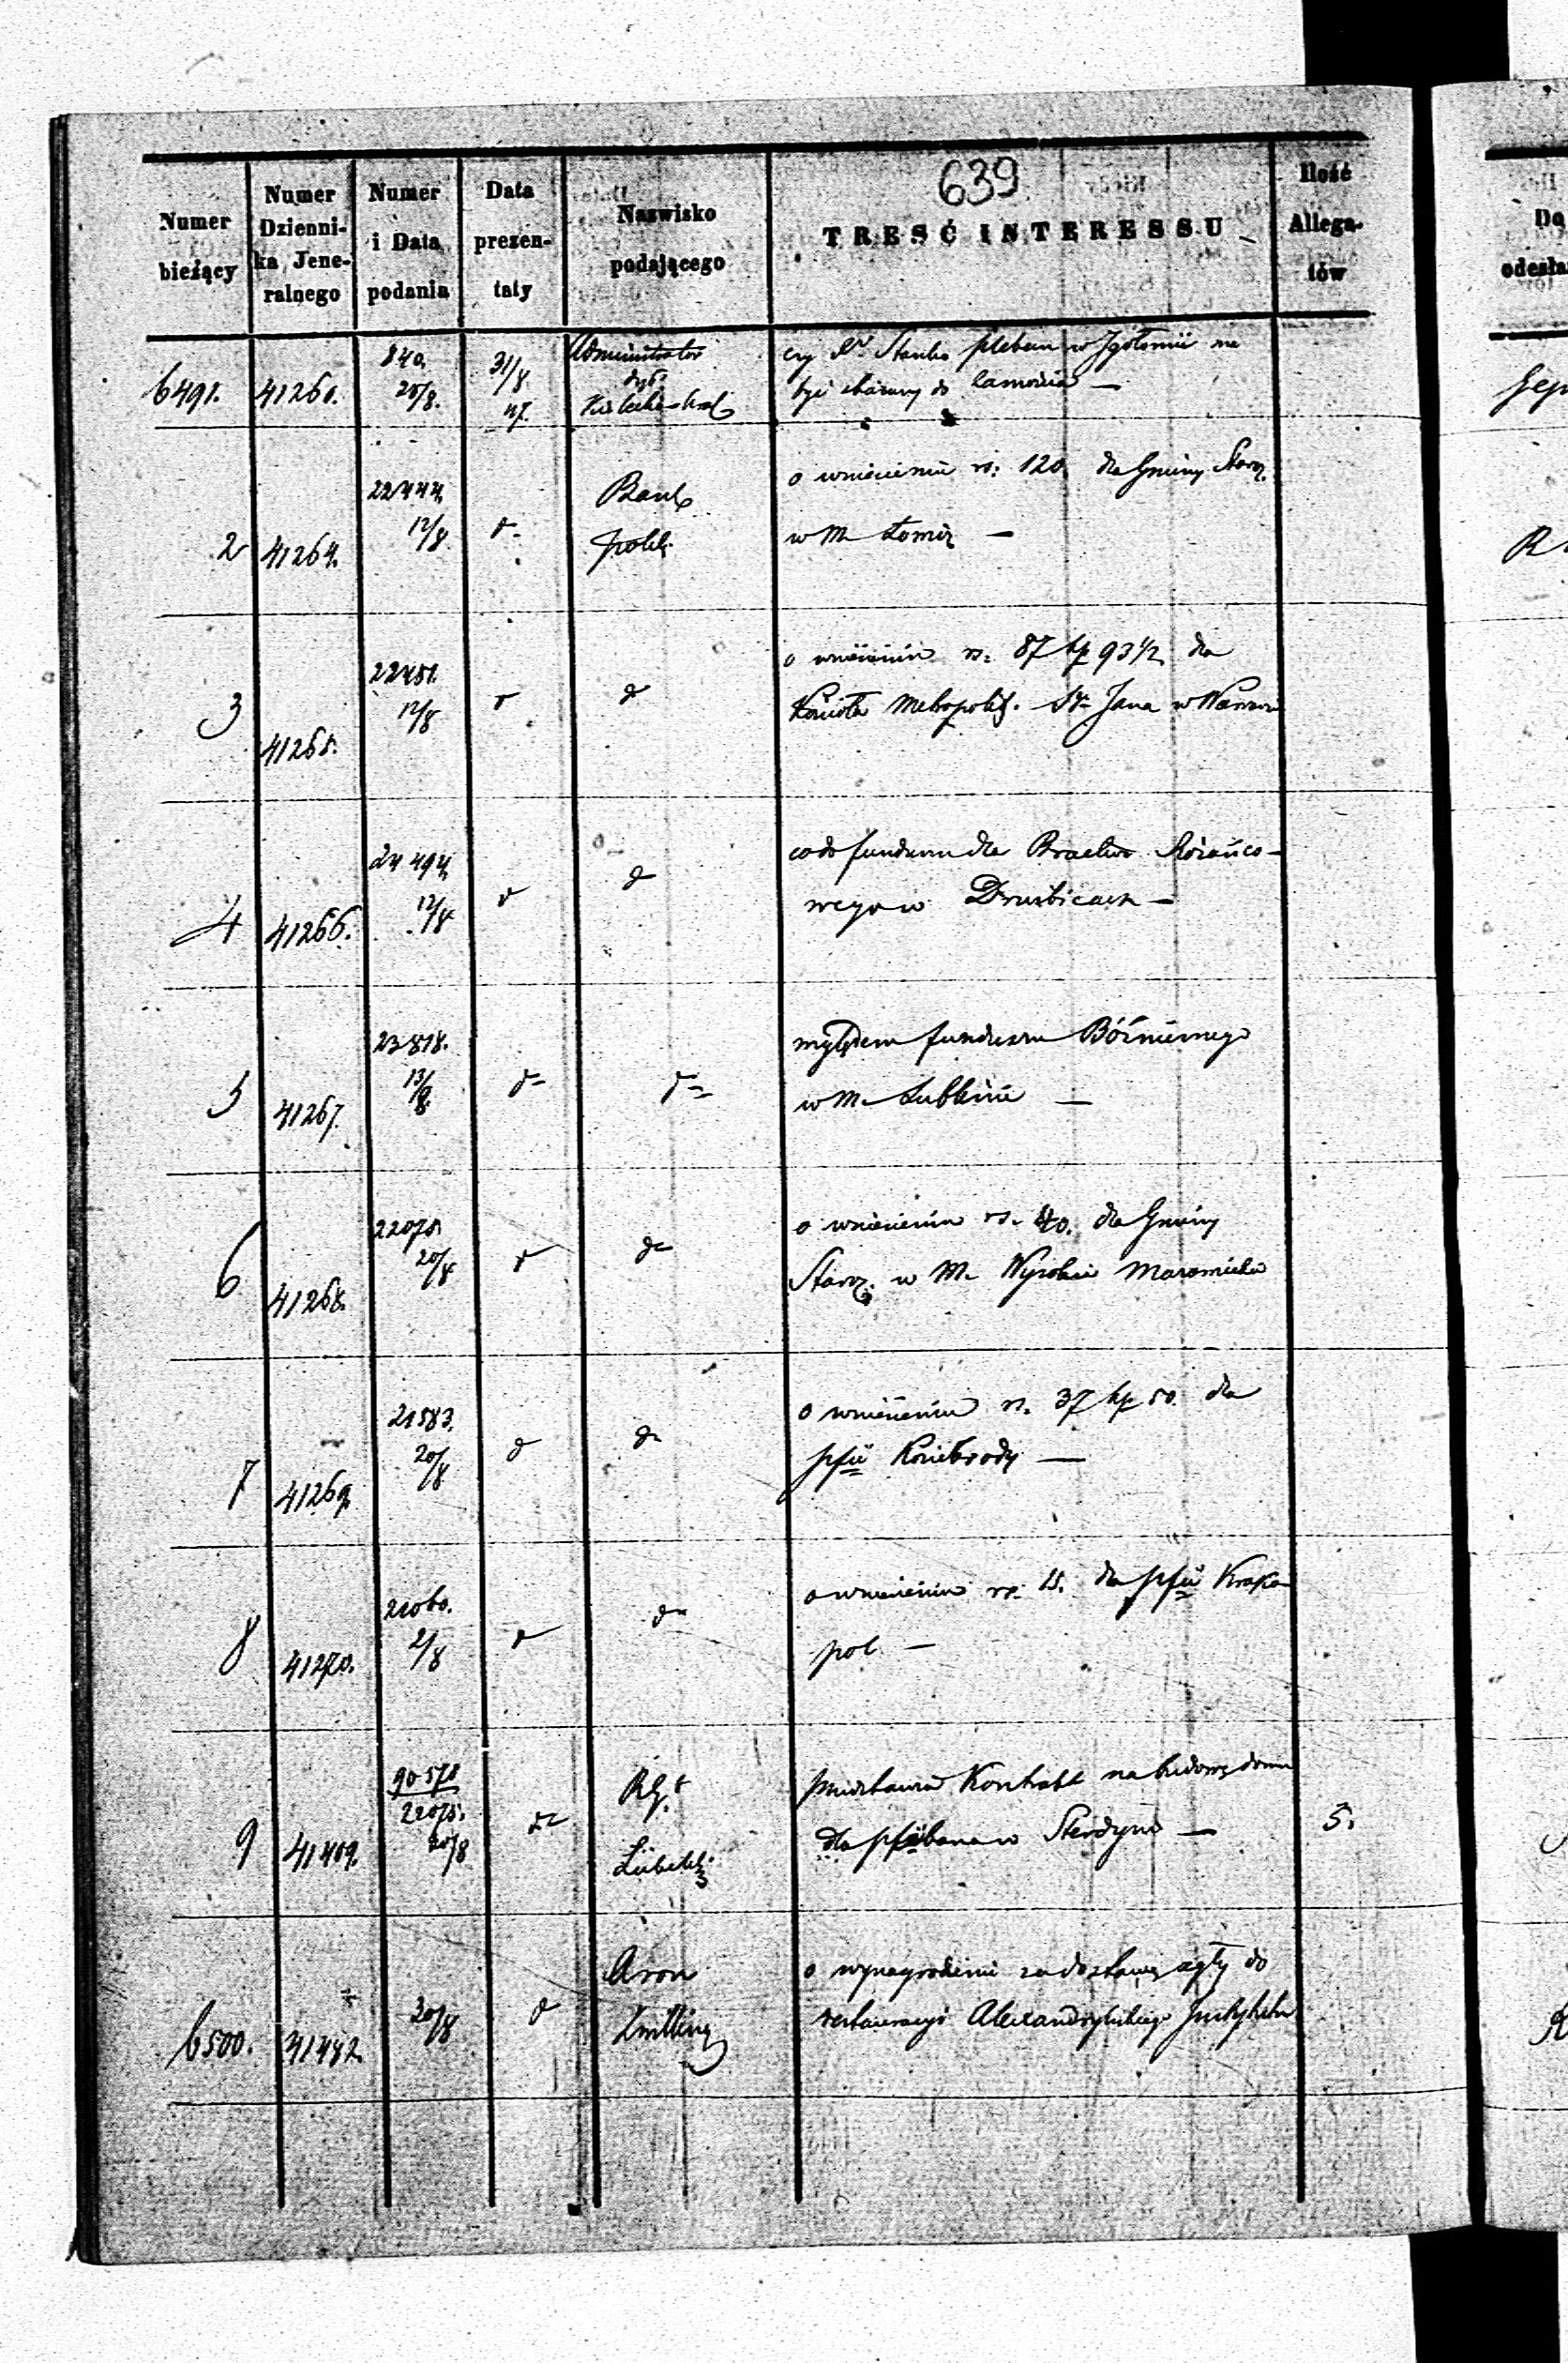 639
Numer bieżący
Numer Dzienni-ka Jene-ralnego
Numer i Data podania
Data prezen-taty
Nazwisko podającego
TREŚĆ INTERESSU
Ilość Allega-tów
6491. 41260. 840. 20/8. 31/8 47. Administrator czy Xdz Stanko pleban w Igołomii ma
być
2 41264. 22444 12/8 Bank o wniesieniu rs: 120. dla Gminy Staroz.
polski w M. Łomży —
3 41265. 22451. 12/8 o wniesieniu rs. 87 kp 93 1/2 dla
Kościoła Metropolit. Sgo Jana w Warszawie
4 41266. 24494 12/8 co do funduszu dla Bractwa Różańco-
wego w Drużbicach —
5 41267. 23818. 13/8. względem funduszu Bóźnicznego
w M. Lublinie —
6 41268. 22075. 20/8 o wniesieniu rs. 40. dla Gminy
Staroz. w M. Wysokie Mazowieckie
7 41269. 21583. 20/8 o wniesieniu rs. 37 kp 50. dla
pfii Koniebrody —
8 41270. 21060. 2/8 o wniesieniu rs. 15. dla pfii Krako
pol. —
9 41409. 90578 22075. 20/8 Rząd przedstawia Kontrakt na budowę domu
Lubelski dla plebana w Sterdyni — 5.
6500. 41442 30/8 Aron o wynagrodzenie za dostawę cegły do
restauracyi Alexandryjskiego Instytutu